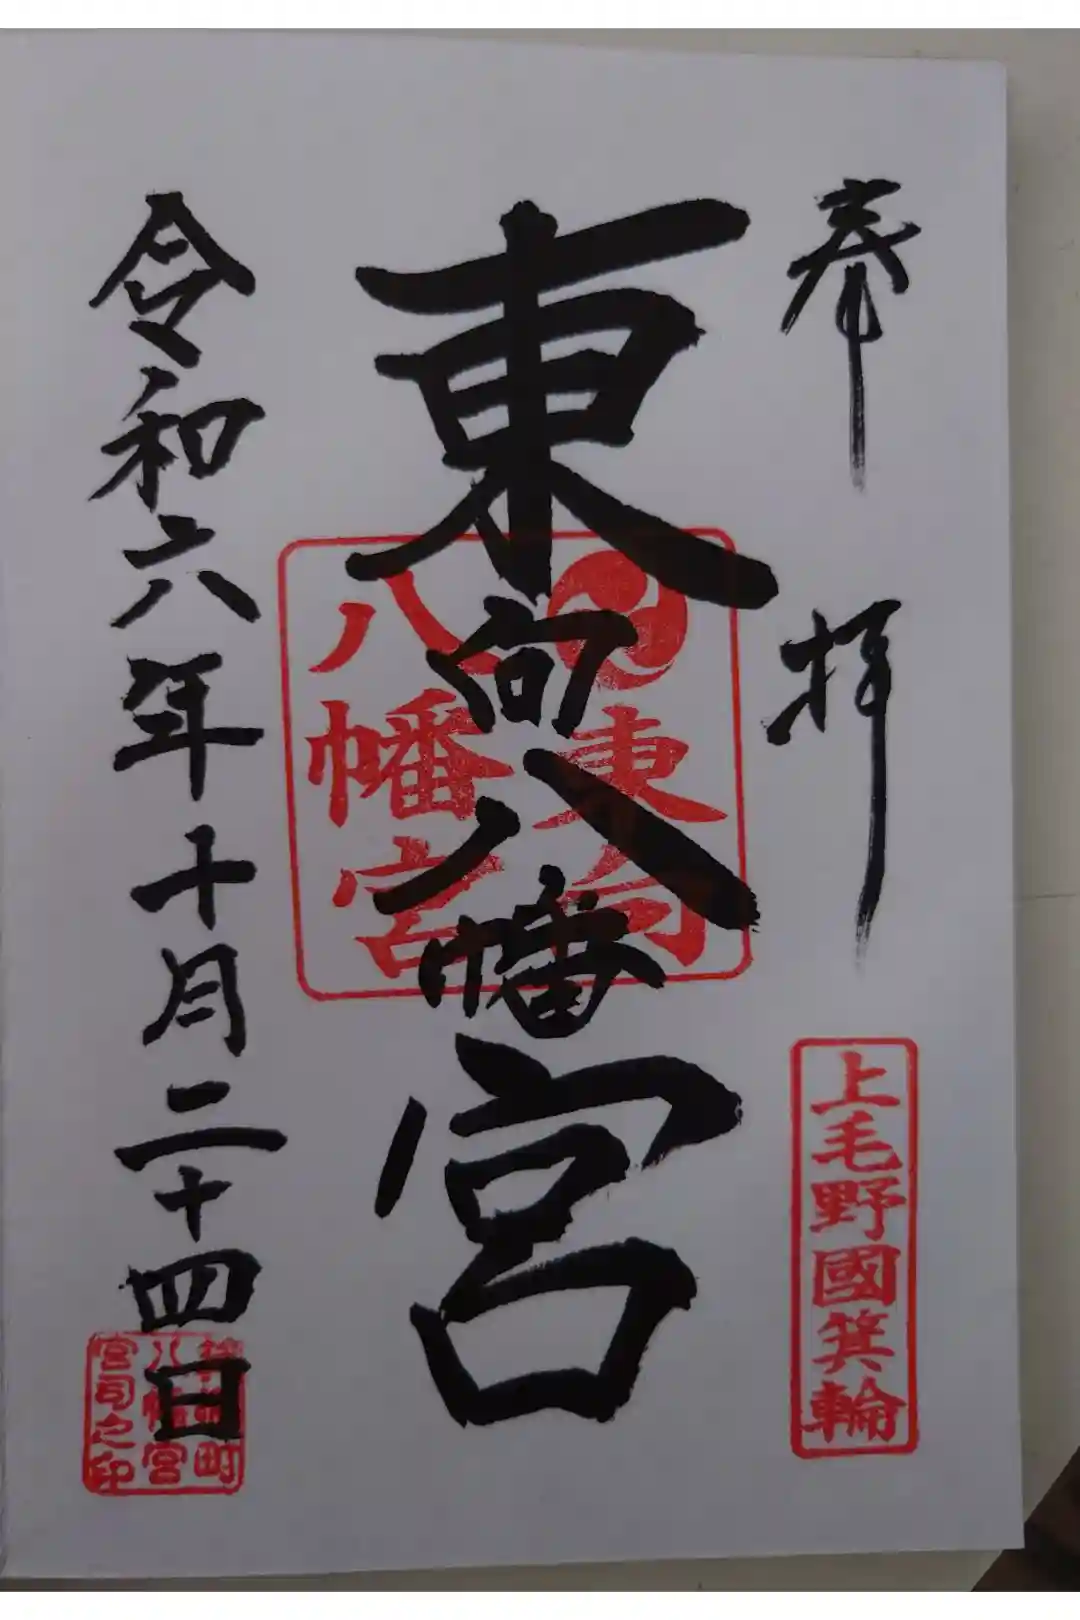 奉拝
上毛野國箕輪
東向八幡宮
東向
八幡宮
令和六年十月二十四日
八幡宮
宮司之印